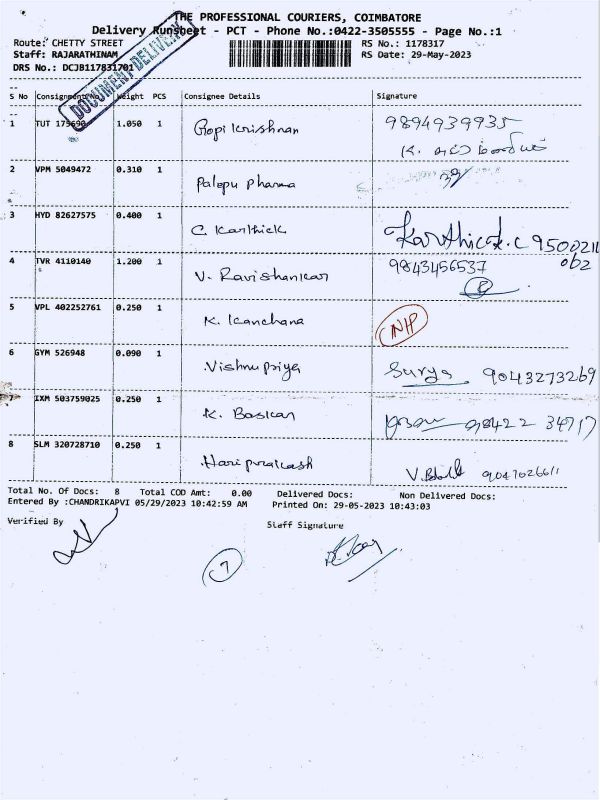 THE PROFESSIONAL COURIERS, COIMBATORE
Delivery Runsheet - PCT - Phone No.:0422-3505555 - Page No.:1
Route: CHETTY STREET
RS No.: 1178317
Staff: RAJARATHINAM
RS Date: 29-May-2023
DRS No.: DCJB117831701
DOCUMENT DELIVERY
S No Consignment No Weight PCS Consignee Details Signature
1 TUT 1.050 1 Gopi krishnan 9894939935
2 VPM 5049472 0.310 1 Palepu Pharma
3 HYD 82627575 0.400 1 C. Karthick Karthick.C 9500211
062
4 TVR 4110140 1.200 1 V. Ravishankar 9843456537
5 VPL 402252761 0.250 1 K. Kanchana NIP
6 GYM 526948 0.090 1 Vishnu priya Surya 9043273269
7 IXM 503759025 0.250 1 K. Baskar 98422 34717
8 SLM 320728710 0.250 1 Hari prakash 9047026611
Total No. Of Docs: 8 Total COD Amt: 0.00 Delivered Docs: Non Delivered Docs:
Entered By :CHANDRIKAPVI 05/29/2023 10:42:59 AM Printed On: 29-05-2023 10:43:03
Verified By Staff Signature
7